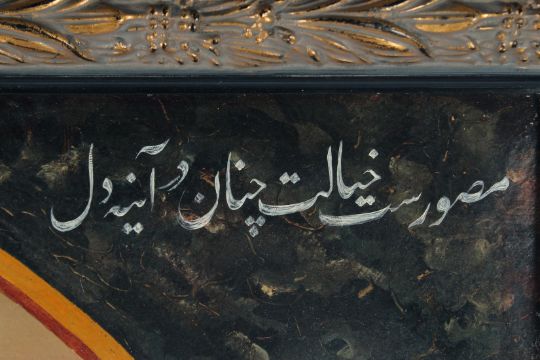 مصورست خیالت چنان در آینه دل